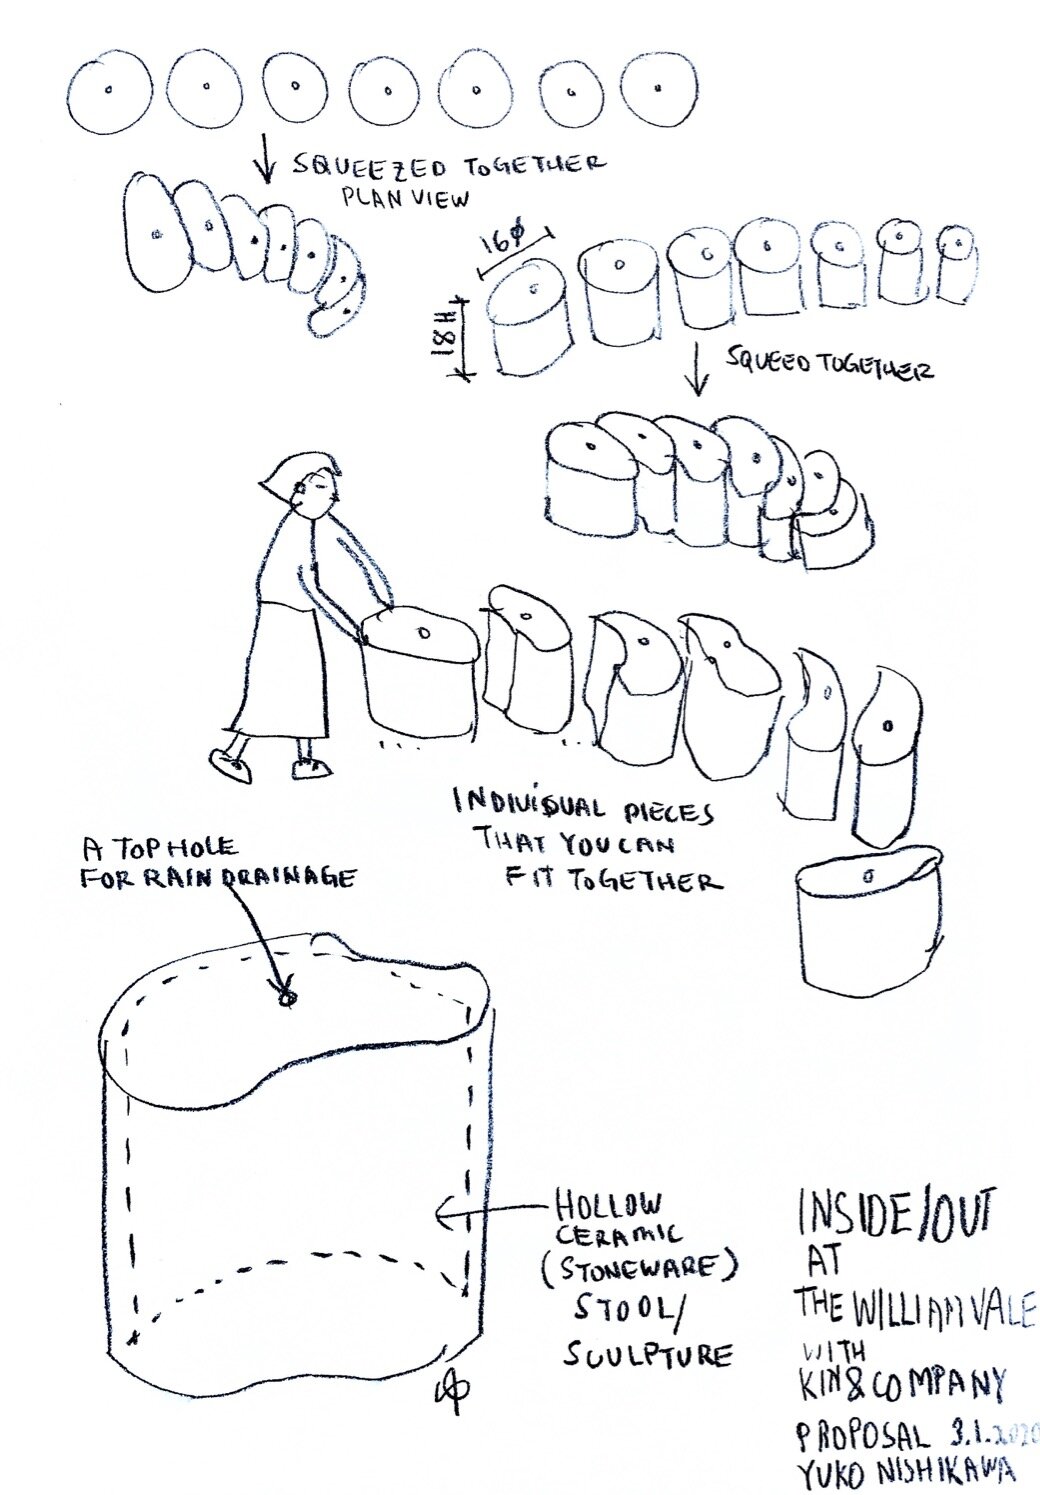 SQUEEZED TOGETHER
PLAN VIEW
16φ
18H
SQUEED TOGETHER
INDIVIDUAL PIECES
THAT YOU CAN
FIT TOGETHER
A TOP HOLE
FOR RAIN DRAINAGE
HOLLOW
CERAMIC
(STONEWARE)
STOOL/
SCULPTURE
INSIDE/OUT
AT
THE WILLIAMVALE
WITH
KIN&COMPANY
PROPOSAL 3.1.2020
YUKO NISHIKAWA